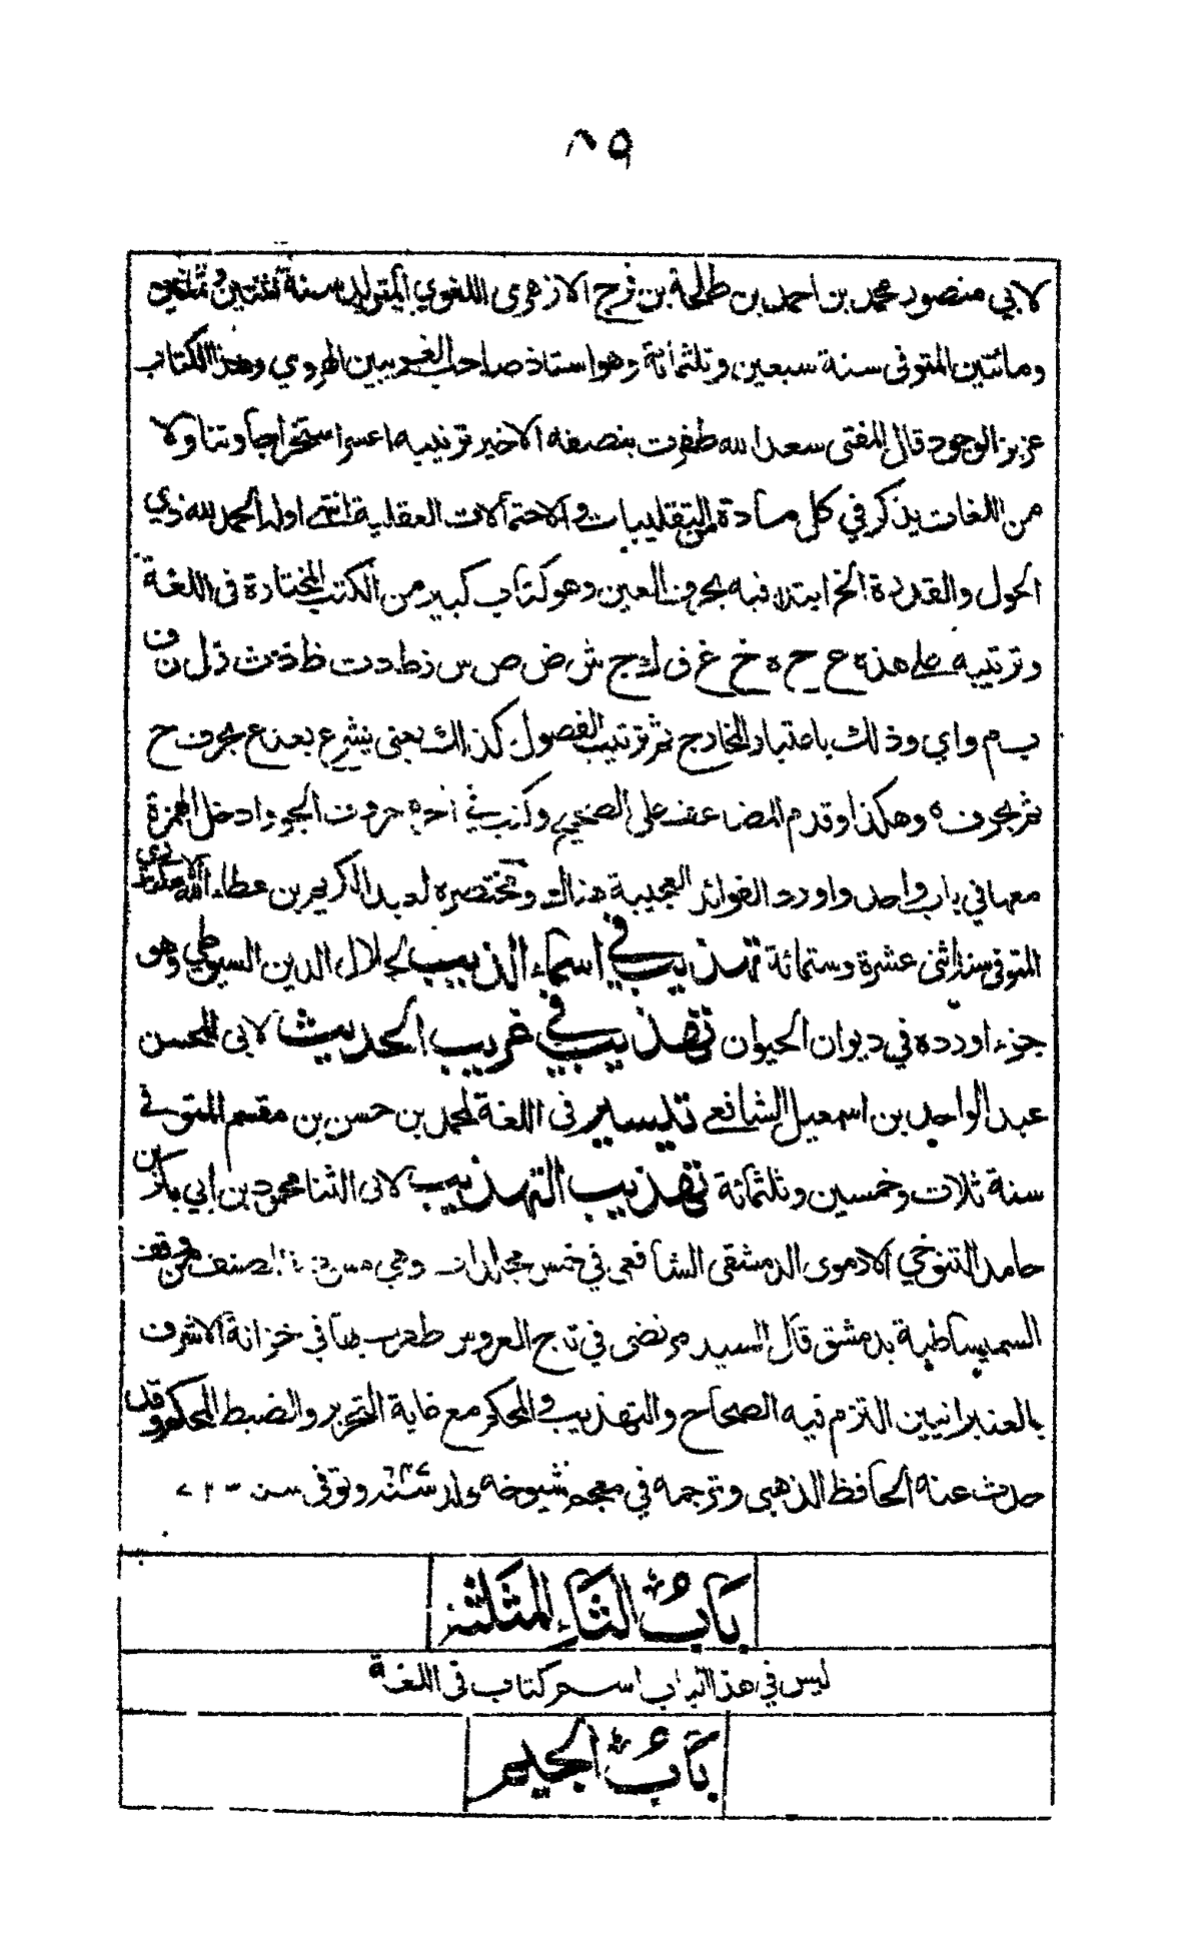 ٨٩
لابي منصور محمد بن احمد بن طلحة بن نرح الازهرى اللغوي المتولد سنة ثنتين وثمانين
ومائتين المتوفى سنة سبعين وثلثمائة وهو استاذ صاحب الغريبين الهروي وهذا الكتاب
عزيز الوجود قال المفتى سعد الله ظفرت بنصفه الاخير ترتيبه اعسر استخراجا وتناولا
من اللغات يذكر في كل مادة من التقليبات والاحتمالات العقلية انتهى اوله الحمد لله ذي
الحول والقدرة الخ ابتدا فيه بحرف العين وهو كتاب كبير من الكتب المختارة فى اللغة
وترتيبه على هذه ع ح ه خ غ ق ك ج ش ض ص س ز ط د ت ظ ذ ث ر ل ن ف
ب م و ا ي وذلك باعتبار المخارج ثم ترتيب الفصول كذلك يعنى يشرع بعد ع بحرف ح
ثم بحرف ه وهكذا وقدم المضاعف على الصحيح وكتب في اخره حروف الجوف وادخل الهمزة
معها في باب واحد واورد الفوائد العجيبة هناك ومختصره لعبد الكريم بن عطاء الله الاسكندري
المتوفى سنة اثنى عشرة وستمائة تهذيب في اسماء الذئب لجلال الدين السيوطي وهو
جزء اورده في ديوان الحيوان تهذيب في غريب الحديث لابى المحسن
عبد الواحد بن اسمعيل الشافعي تيسير فى اللغة لمحمد بن حسن بن مقسم المتوفى
سنة ثلاث وخمسين وثلثمائة تهذيب التهذيب لابى الثنا محمود بن ابي بكر بن
حامد التنوخي الارموى الدمشقى الشافعى في خمس مجلدات وهي مسودة المصنف من وقف
السميساطية بدمشق قال السيد مرتضى في تاج العروس ظفرت بها في خزانة الاشرف
بالعنبرانيين التزم فيه الصحاح والتهذيب والمحكم مع غاية التحرير والضبط المحكم وقد
حدث عنه الحافظ الذهبى وترجمه في معجم شيوخه ولد سنة ٦٤٧ وتوفى سنة ٧٢٣
باب الثاء المثلثة
ليس في هذا الباب اسم كتاب فى اللغة
باب الجيم